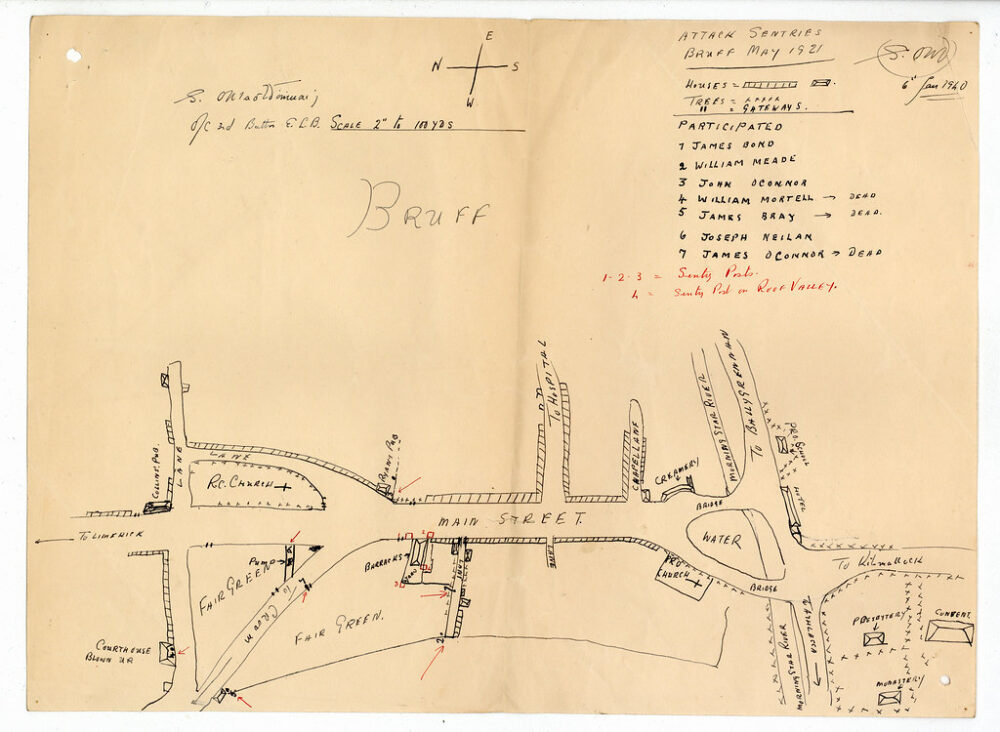 E
N S
W
ATTACK SENTRIES
BRUFF MAY 1921
6th Jan 1940
HOUSES =
TREES =
" = GATEWAYS.
O/C 2nd Battn E.L.B. SCALE 2" to 100 YDS
BRUFF
PARTICIPATED
1 JAMES BOND
2 WILLIAM MEADE
3 JOHN OCONNOR
4 WILLIAM MORTELL → DEAD
5 JAMES BRAY → DEAD.
6 JOSEPH NEILAN
7 JAMES OCONNOR → DEAD
1-2-3 = Sentry Posts.
4 = Sentry Post on ROOF VALLEY.
TO HOSPITAL
MORNING STAR RIVER
TO BALLYGRENNAN
SCHOOL
COLLINS PUB.
LANE
LANE
R.C. CHURCH
RYANS PUB
CHAPEL LANE
CREAMERY
HOTEL
BRIDGE
MAIN STREET.
TO LIMERICK
WATER
TO KILMALLOCK
PUMP
BARRACKS
YARD
LANE
LANE
PRO
CHURCH
BRIDGE
FAIR GREEN
FAIR GREEN.
TO CROOM
COURTHOUSE
BLOWN UP
MORNING STAR RIVER
PRESBYTERY
CONVENT
MONASTERY